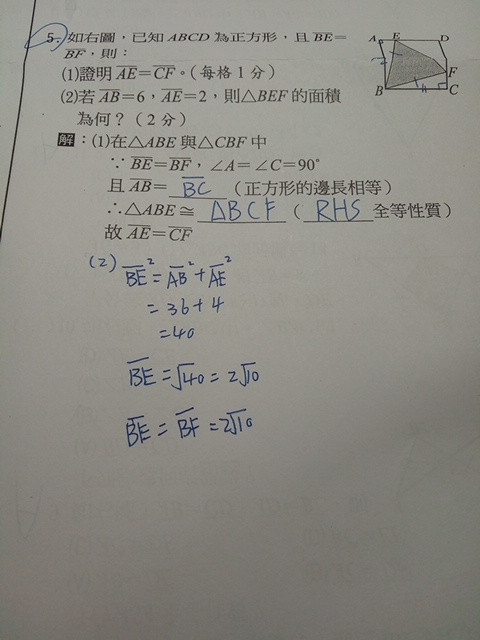 5. 如右圖，已知 ABCD 為正方形，且 BE=
BF，則：
(1)證明 AE=CF。(每格1分)
(2)若 AB=6，AE=2，則△BEF 的面積
為何？(2分)
A E D
F
B C
解：(1)在△ABE 與△CBF 中
∵ BE=BF，∠A=∠C=90°
且 AB= BC (正方形的邊長相等)
∴△ABE≅ ΔBCF ( RHS 全等性質)
故 AE=CF
(2) BE²=AB²+AE²
=36+4
=40
BE=√40=2√10
BE=BF=2√10